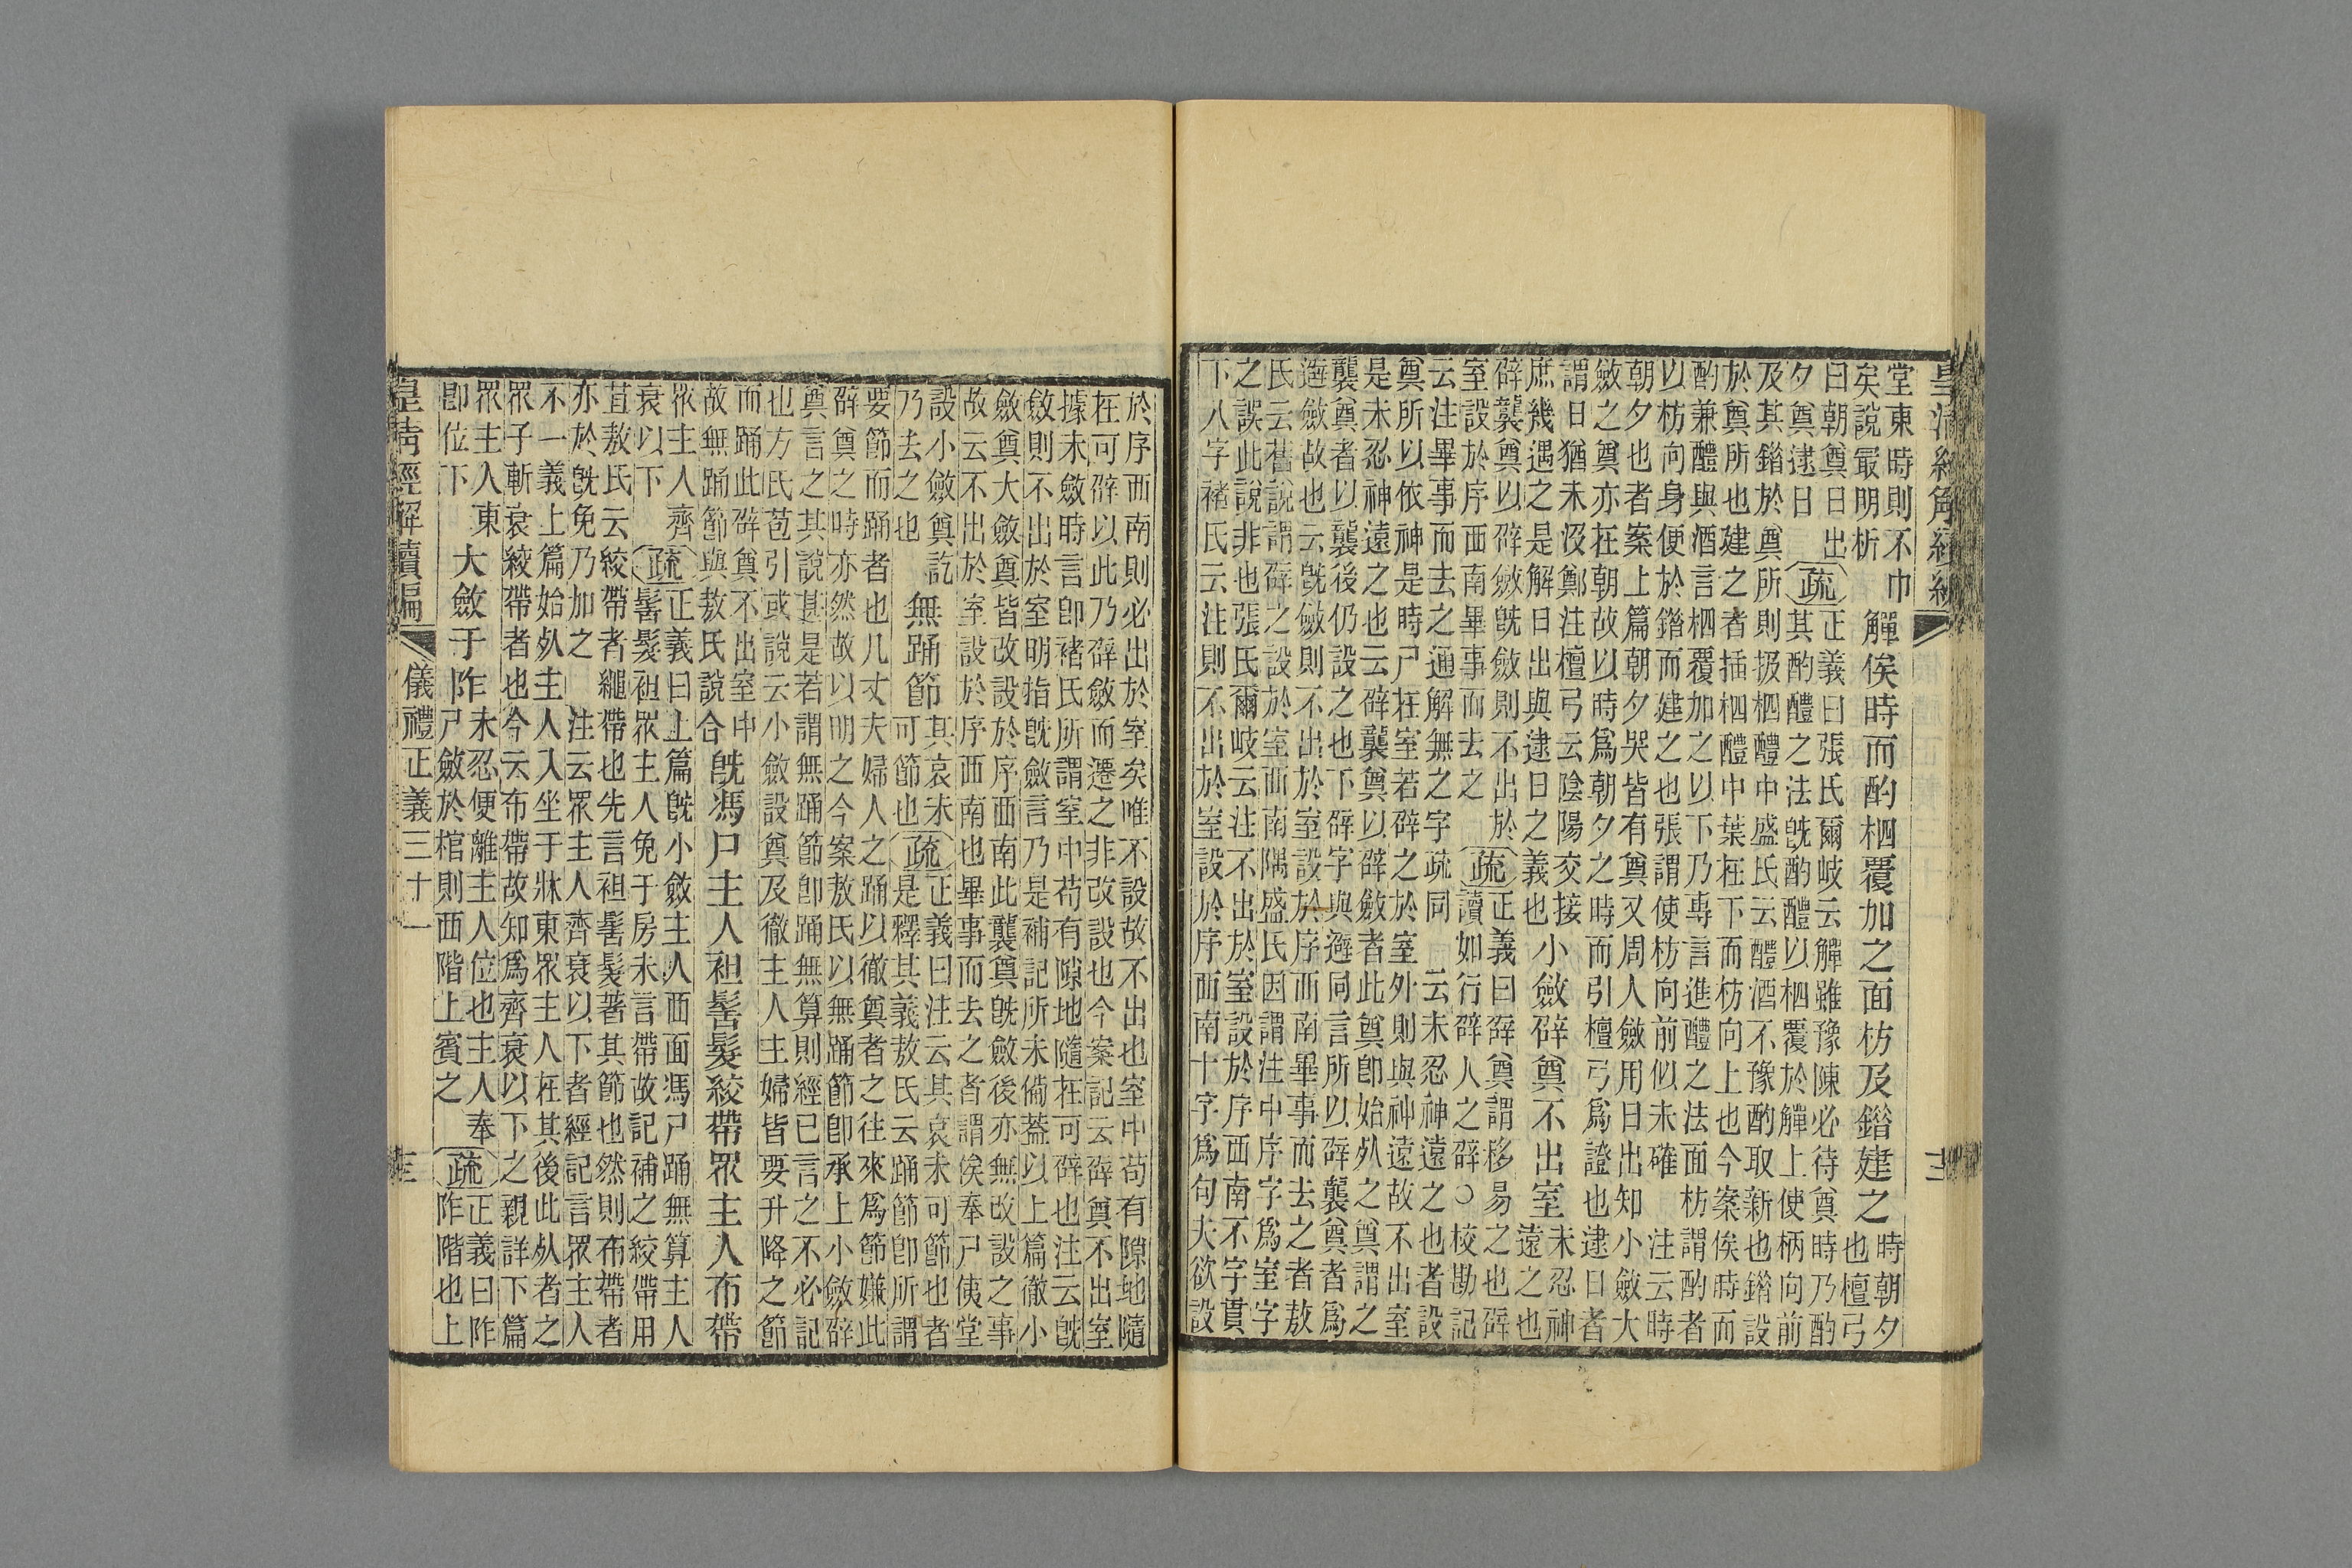 皇清經解續編
堂東時則不巾
矣說最明析
觶俟時而酌柶覆加之面枋及錔建之
時朝夕
也檀弓
曰朝奠日出
夕奠逮日
疏
正義曰張氏爾岐云觶雖豫陳必待奠時乃酌
其酌醴之法旣酌醴以柶覆於觶上使柄向前
及其錔於奠所則扱柶醴中盛氏云醴酒不豫酌取新也錔設
於奠所也建之者插柶醴中葉在下而枋向上也今案俟時而
酌兼醴與酒言柶覆加之以下乃專言進醴之法面枋謂酌者
以枋向身便於錔而建之也張謂使枋向前似未確 注云時
朝夕也者案上篇朝夕哭皆有奠又周人斂用日出知小斂大
斂之奠亦在朝故以時爲朝夕之時而引檀弓爲證也逮日者
謂日猶未沒鄭注檀弓云陰陽交接
庶幾遇之是解日出與逮日之義也
小斂辟奠不出室
未忍神
遠之也
辟襲奠以辟斂旣斂則不出於
室設於序西南畢事而去之
疏
正義曰辟奠謂移易之也辟
讀如行辟人之辟○校勘記
云注畢事而去之通解無之字疏同 云未忍神遠之也者設
奠所以依神是時尸在室若辟之於室外則與神遠故不出室
是未忍神遠之也云辟襲奠以辟斂者此奠卽始𣦸之奠謂之
襲奠者以襲後仍設之也下辟字與避同言所以辟襲奠者爲
避斂故也云旣斂則不出於室設於序西南畢事而去之者敖
氏云舊說謂辟之設於室西南隅盛氏因謂注中序字爲室字
之誤此說非也張氏爾岐云注不出於室設於序西南不字貫
下八字褚氏云注則不出於室設於序西南十字爲句夫欲設
於序西南則必出於室矣唯不設故不出也室中苟有隙地隨
在可辟以此乃辟斂而遷之非改設也今案記云辟奠不出室
據未斂時言卽褚氏所謂室中苟有隙地隨在可辟也注云旣
斂則不出於室明指旣斂言乃是補記所未備蓋以上篇徹小
斂奠大斂奠皆改設於序西南此襲奠旣斂後亦無改設之事
故云不出於室設於序西南也畢事而去之者謂俟奉尸侇堂
設小斂奠訖
乃去之也
無踊節
其哀未
可節也
疏
正義曰注云其哀未可節也者
是釋其義敖氏云踊節卽所謂
要節而踊者也凡丈夫婦人之踊以徹奠者之往來爲節嫌此
辟奠之時亦然故以明之今案敖氏以無踊節卽承上小斂辟
奠言之其說甚是若謂無踊節卽踊無算則經已言之不必記
也方氏苞引或說云小斂設奠及徹主人主婦皆要升降之節
而踊此辟奠不出室中
故無踊節與敖氏說合
旣馮尸主人袒髺髮絞帶眾主人布帶
眾主人齊
衰以下
疏
正義曰上篇旣小斂主人西面馮尸踊無算主人
髺髮袒眾主人免于房未言帶故記補之絞帶用
苴敖氏云絞帶者繩帶也先言袒髺髮著其節也然則布帶者
亦於旣免乃加之 注云眾主人齊衰以下者經記言眾主人
不一義上篇始𣦸主人入坐于牀東眾主人在其後此𣦸者之
眾子斬衰絞帶者也今云布帶故知爲齊衰以下之親詳下篇
眾主人東
卽位下
大斂于阼
未忍便離主人位也主人奉
尸斂於棺則西階上賓之
疏
正義曰阼
阼階也上
皇清經解續編
儀禮正義三十一